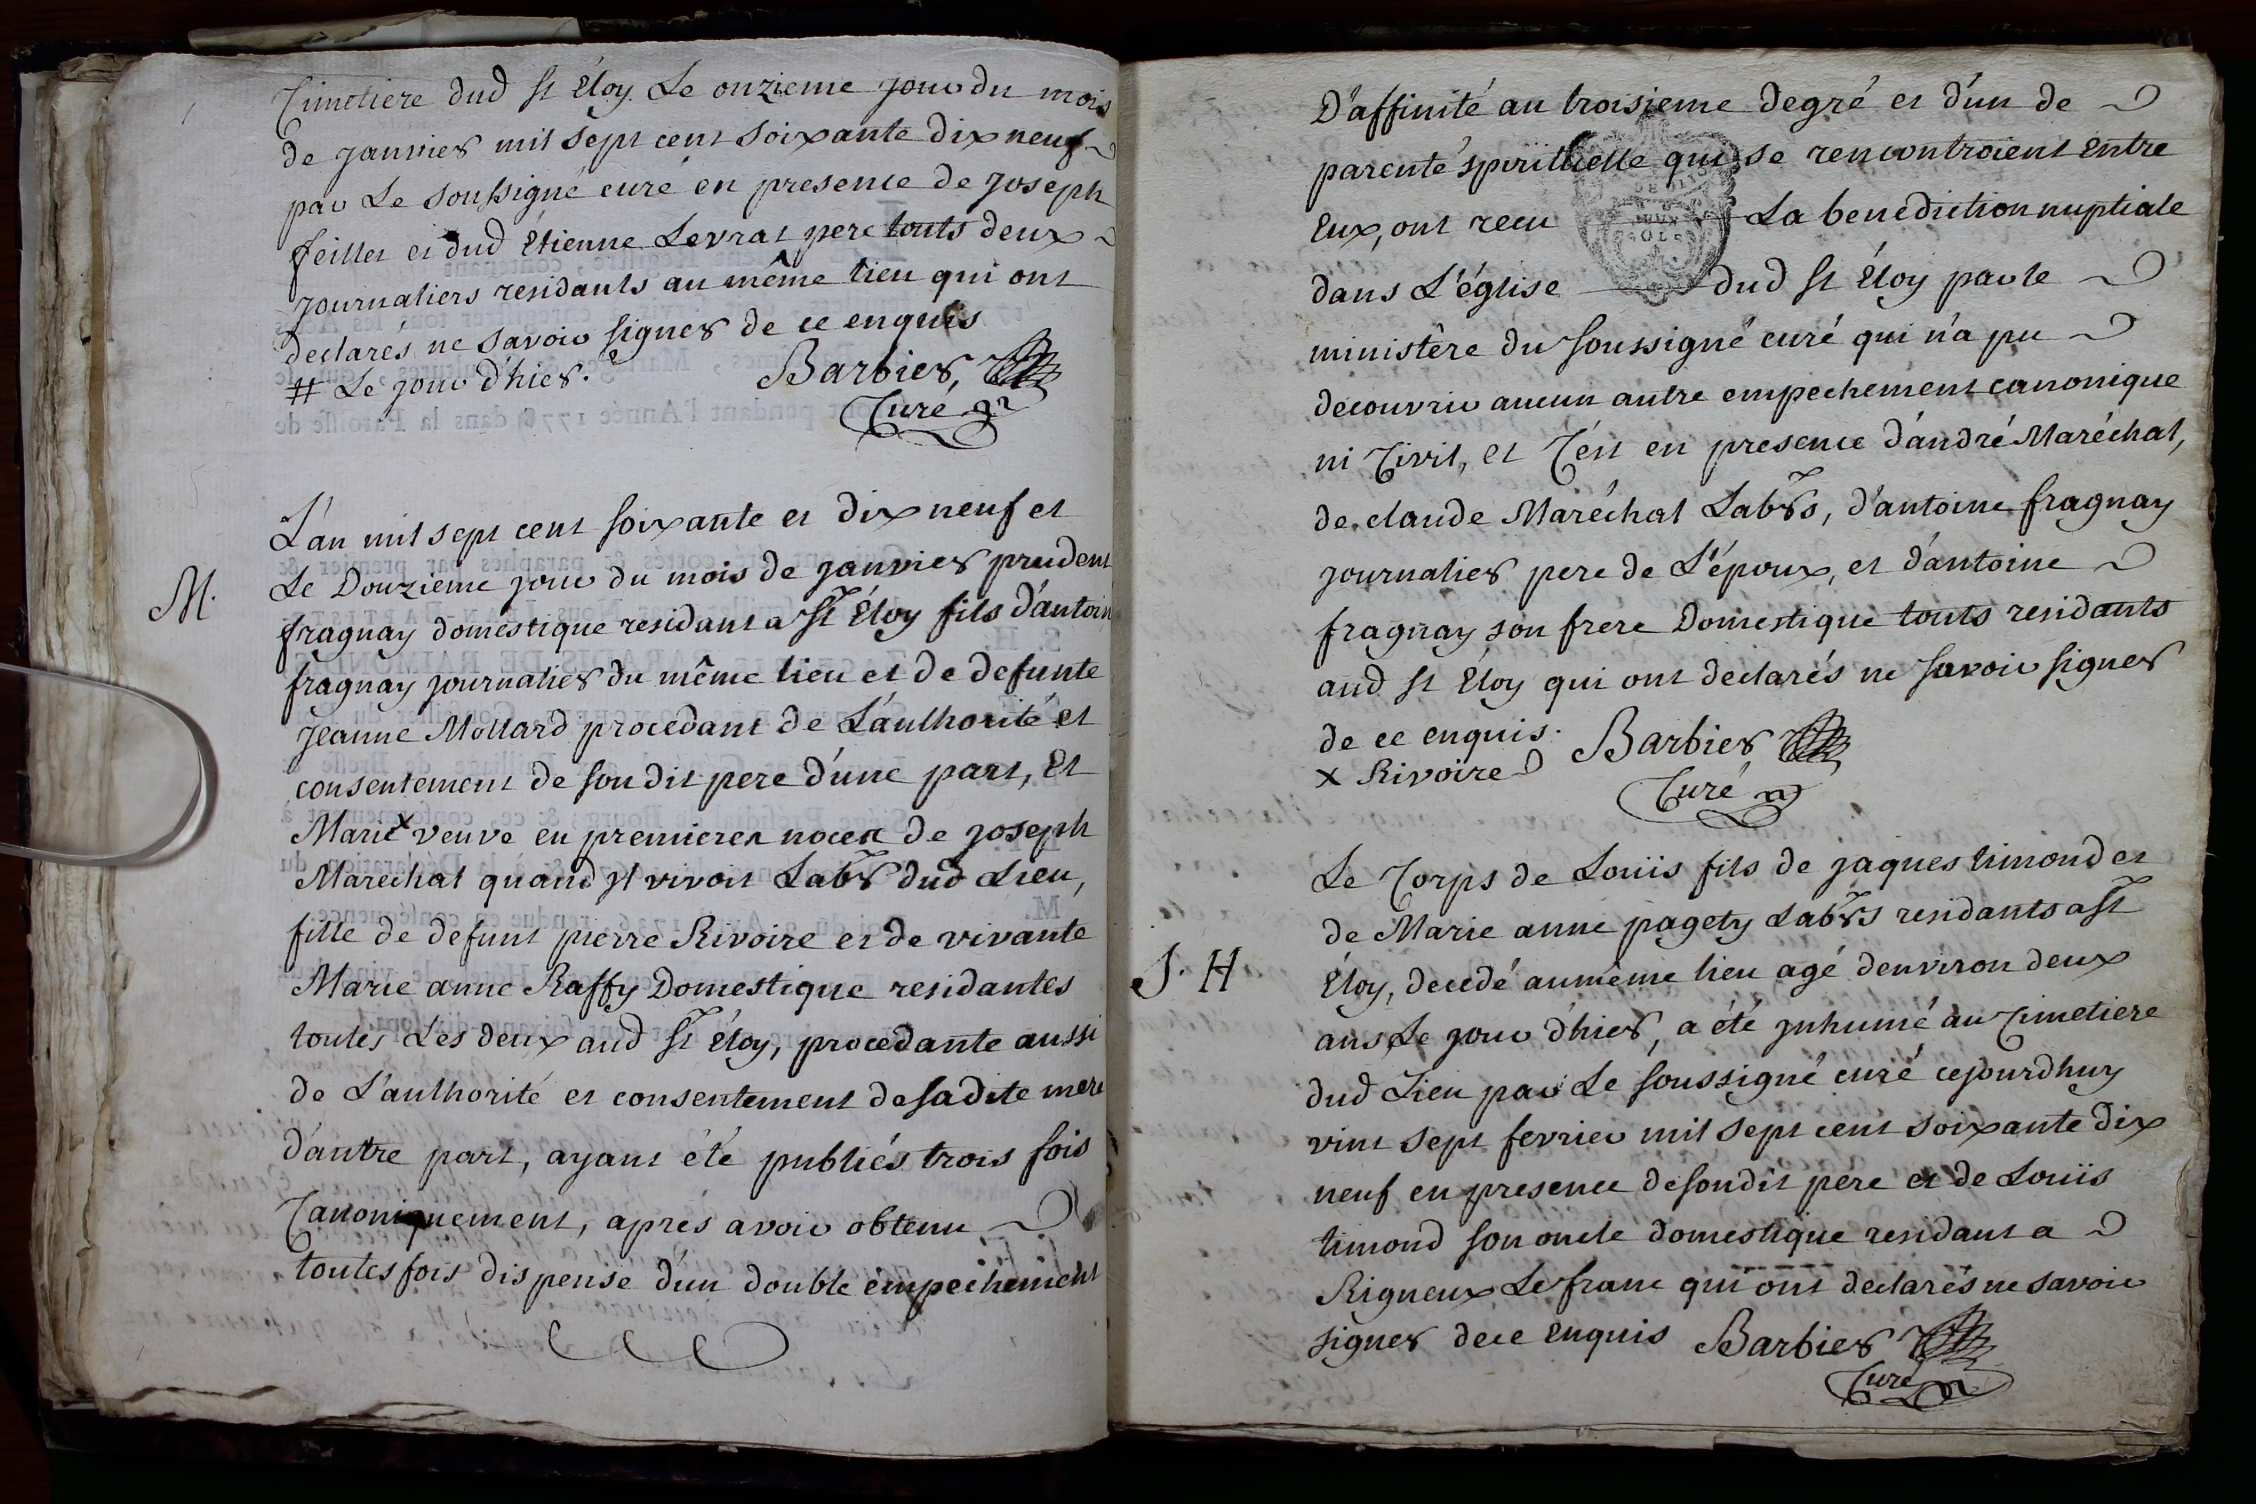 Cimetiere dud St Éloy. Le onzieme jour du mois
de janvier mil sept cent soixante dix neuf
par Le soussigné curé en presence de joseph
feillet et dud Etienne Levrat pere touts deux
journaliers residants au même lieu qui ont
declarés ne savoir signer de ce enquis
# Le jour d'hier. Barbier,
Curé
L'an mil sept cent soixante et dix neuf et
Le Douzieme jour du mois de janvier prudent
M.
fragnay domestique residant a St Éloy fils d'antoin
fragnay journalier du même lieu et de defunte
jeanne Mollard procedant de L'authorité et
consentement de son dit pere d'une part, Et
Marie x veuve en premieres noces de joseph
Marechal quand jl vivoit Labr dud Lieu,
fille de defunt pierre Rivoire et de vivante
Marie anne Raffy Domestique residantes
toutes Les deux aud St Éloy, procedante aussi
de L'authorité et consentement de sa dite mere
d'autre part, ayant été publiés trois fois
Canoniquement, aprés avoir obtenu
toutes fois dispense d'un double empechement
D'affinité au troisieme degré et d'un de
parenté spirituelle qui se rencontroient Entre
Eux, ont recu La benediction nuptiale
dans L'église dud St Éloy par le
ministêre du soussigné curé qui n'a pu
decouvrir aucun autre empechement canonique
ni Civil, et C'ést en presence d'andré Maréchal,
de claude Maréchal Labrs, d'antoine fragnay
journalier pere de L'époux, et d'antoine
fragnay son frere Domestique touts residants
aud St Éloy qui ont declarés ne savoir signer
de ce enquis. Barbier
x Rivoire
Curé
Le Corps de Louis fils de jaques timond et
de Marie anne pagety Labrs residants a St
S. H
Éloy, decedé au même lieu agé d'environ deux
ans Le jour d'hier, a été jnhumé au Cimetiere
dud Lieu par Le soussigné curé cejourdhuy
vint sept fevrier mil sept cent soixante dix
neuf en presence de son dit pere et de Louis
timond son oncle domestique residant a
Rigneux Le franc qui ont declarés ne savoir
signer de ce Enquis Barbier
Curé